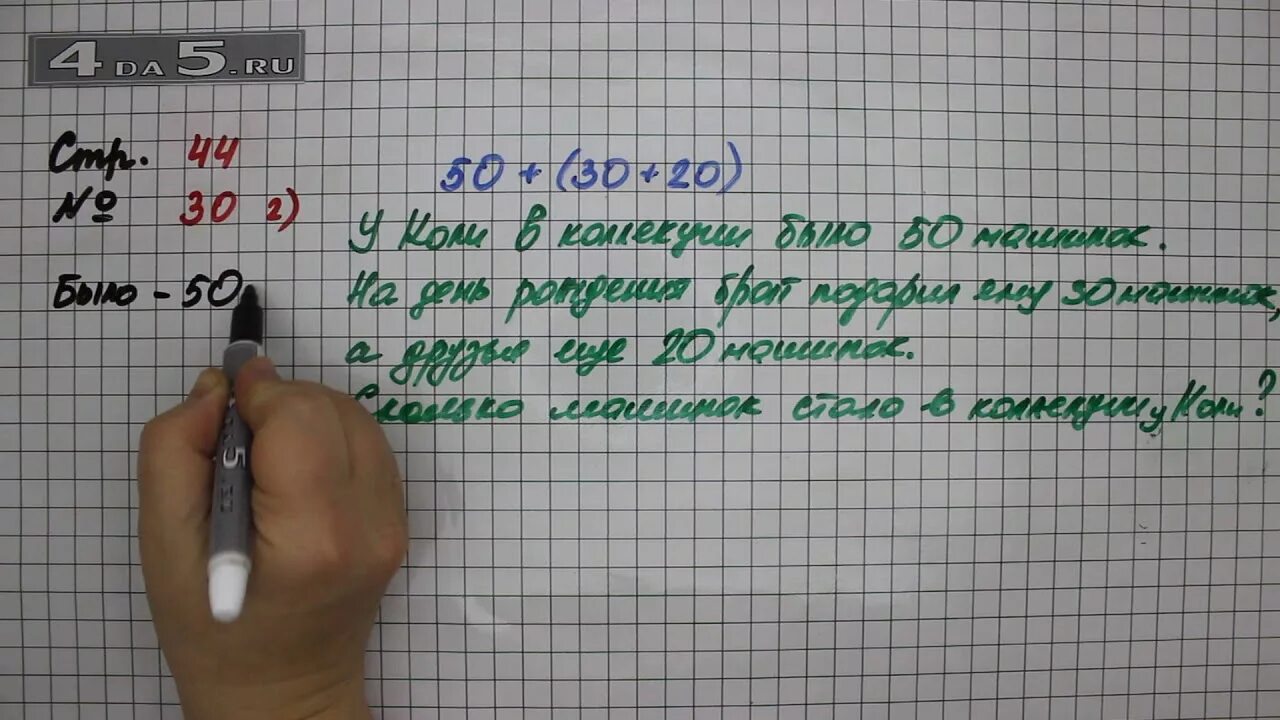 4DA5.RU
Стр. 44
№ 30 г)
50 + (30 + 20)
У Коли в коллекции было 50 машинок.
Было - 50
На день рождения брат подарил ему 30 машинок,
а друзья еще 20 машинок.
Сколько машинок стало в коллекции у Коли?